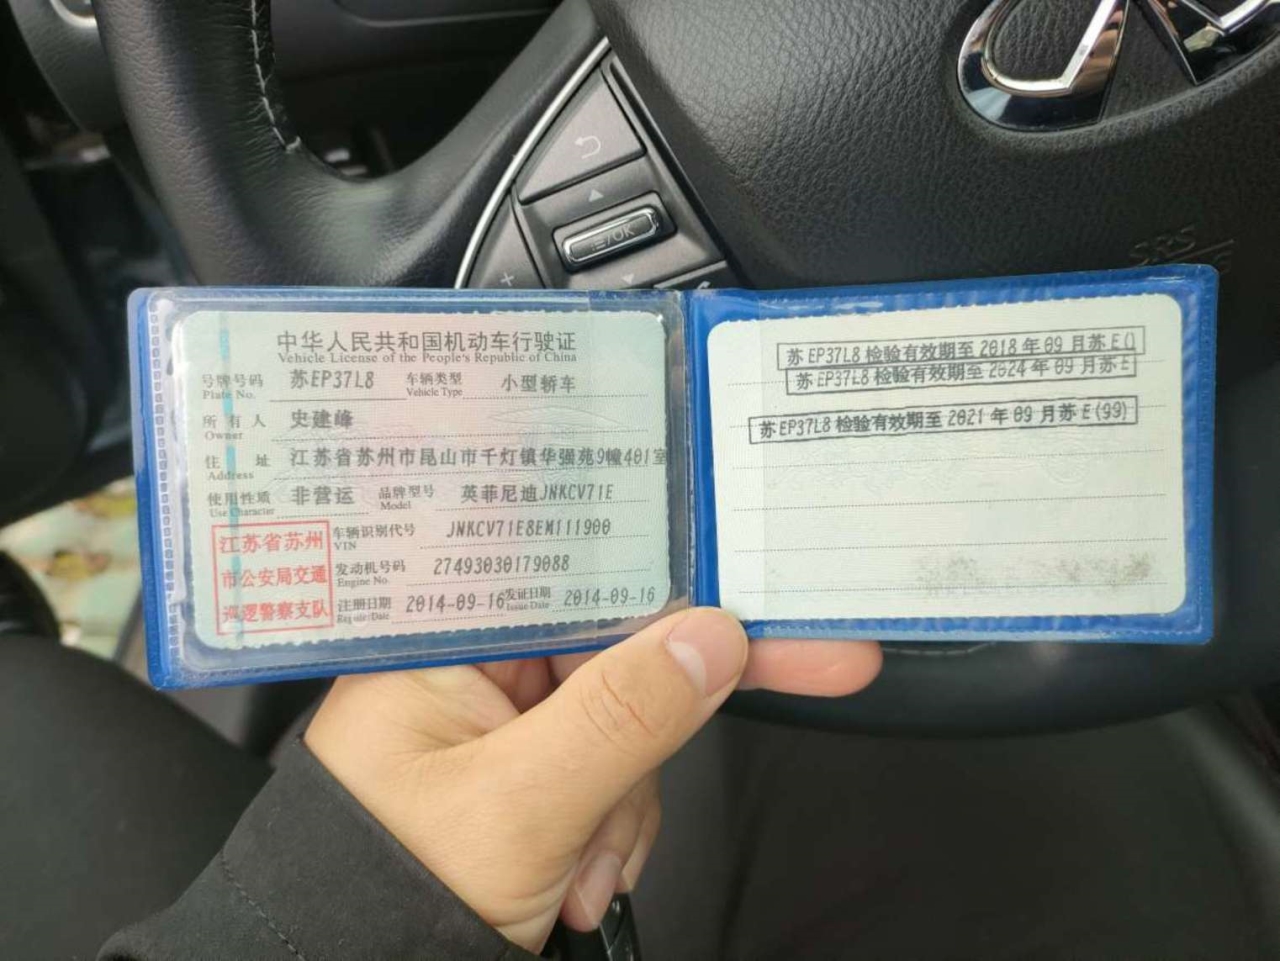 中华人民共和国机动车行驶证
Vehicle License of the People's Republic of China
号牌号码 苏EP37L8 车辆类型 小型轿车
Plate No. Vehicle Type
所有人 史建峰
Owner
住址 江苏省苏州市昆山市千灯镇华强苑9幢401室
Address
使用性质 非营运 品牌型号 英菲尼迪JNKCV71E
Use Character Model
车辆识别代号 JNKCV71E8EM111900
VIN
发动机号码 27493030179088
Engine No.
注册日期 2014-09-16 发证日期 2014-09-16
Register Date Issue Date
江苏省苏州
市公安局交通
巡逻警察支队
苏EP37L8检验有效期至2018年09月苏E()
苏EP37L8检验有效期至2024年09月苏E
苏EP37L8检验有效期至2021年09月苏E(99)
/OK
+
SRS